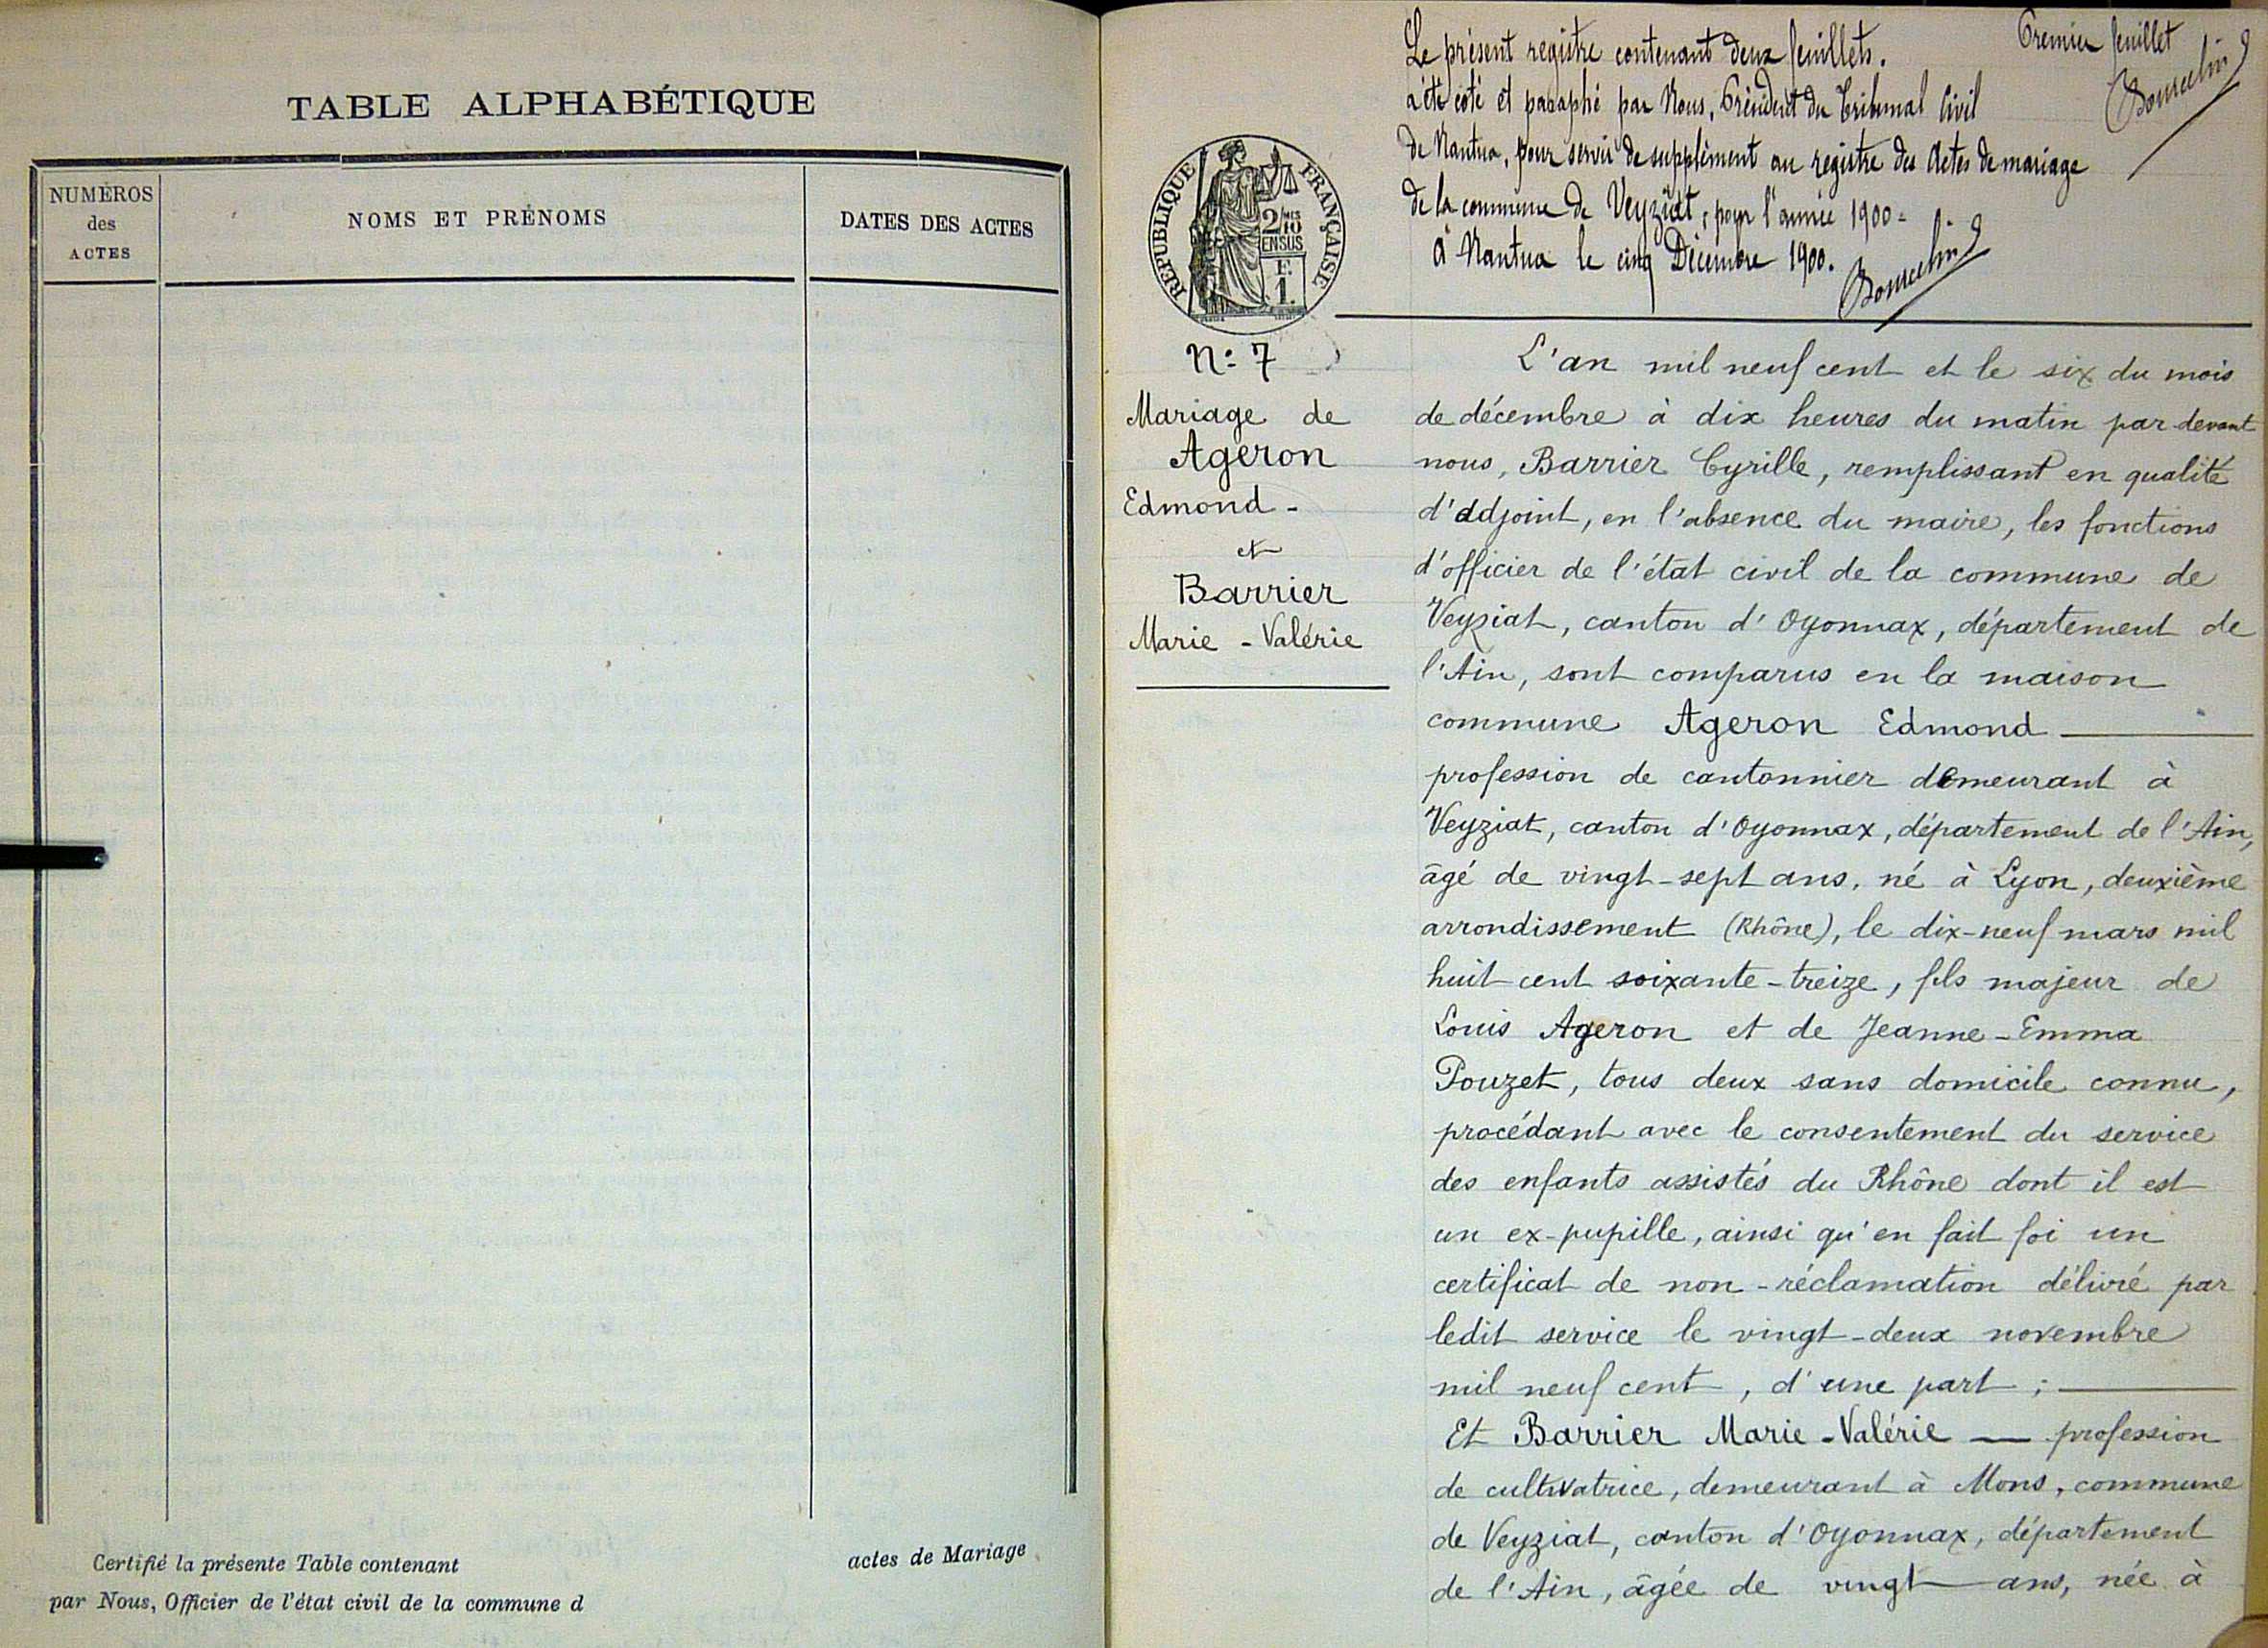 TABLE ALPHABÉTIQUE
NUMÉROS
des
ACTES
NOMS ET PRÉNOMS
DATES DES ACTES
Certifié la présente Table contenant actes de Mariage
par Nous, Officier de l'état civil de la commune d
Premier feuillet
Le présent registre contenant deux feuillets.
a été coté et paraphé par Nous, Président du Tribunal Civil
de Nantua, pour servir de supplément au registre des Actes de mariage
de la commune de Veyziat, pour l'année 1900 =
A Nantua le cinq Décembre 1900.
RÉPUBLIQUE FRANÇAISE
2/10 MES
EN SUS
F.
1.
N: 7
Mariage de
Ageron
Edmond -
et
Barrier
Marie - Valérie
L'an mil neuf cent et le six du mois
de décembre à dix heures du matin par-devant
nous, Barrier Cyrille, remplissant en qualité
d'adjoint, en l'absence du maire, les fonctions
d'officier de l'état civil de la commune de
Veyziat, canton d'Oyonnax, département de
l'Ain, sont comparus en la maison
commune Ageron Edmond
profession de cantonnier demeurant à
Veyziat, canton d'Oyonnax, département de l'Ain,
âgé de vingt-sept ans, né à Lyon, deuxième
arrondissement (Rhône), le dix-neuf mars mil
huit cent soixante-treize, fils majeur de
Louis Ageron et de Jeanne-Emma
Pouzet, tous deux sans domicile connu,
procédant avec le consentement du service
des enfants assistés du Rhône dont il est
un ex-pupille, ainsi qu'en fait foi un
certificat de non-réclamation délivré par
ledit service le vingt-deux novembre
mil neuf cent, d'une part ;
Et Barrier Marie-Valérie — profession
de cultivatrice, demeurant à Mons, commune
de Veyziat, canton d'Oyonnax, département
de l'Ain, âgée de vingt ans, née à